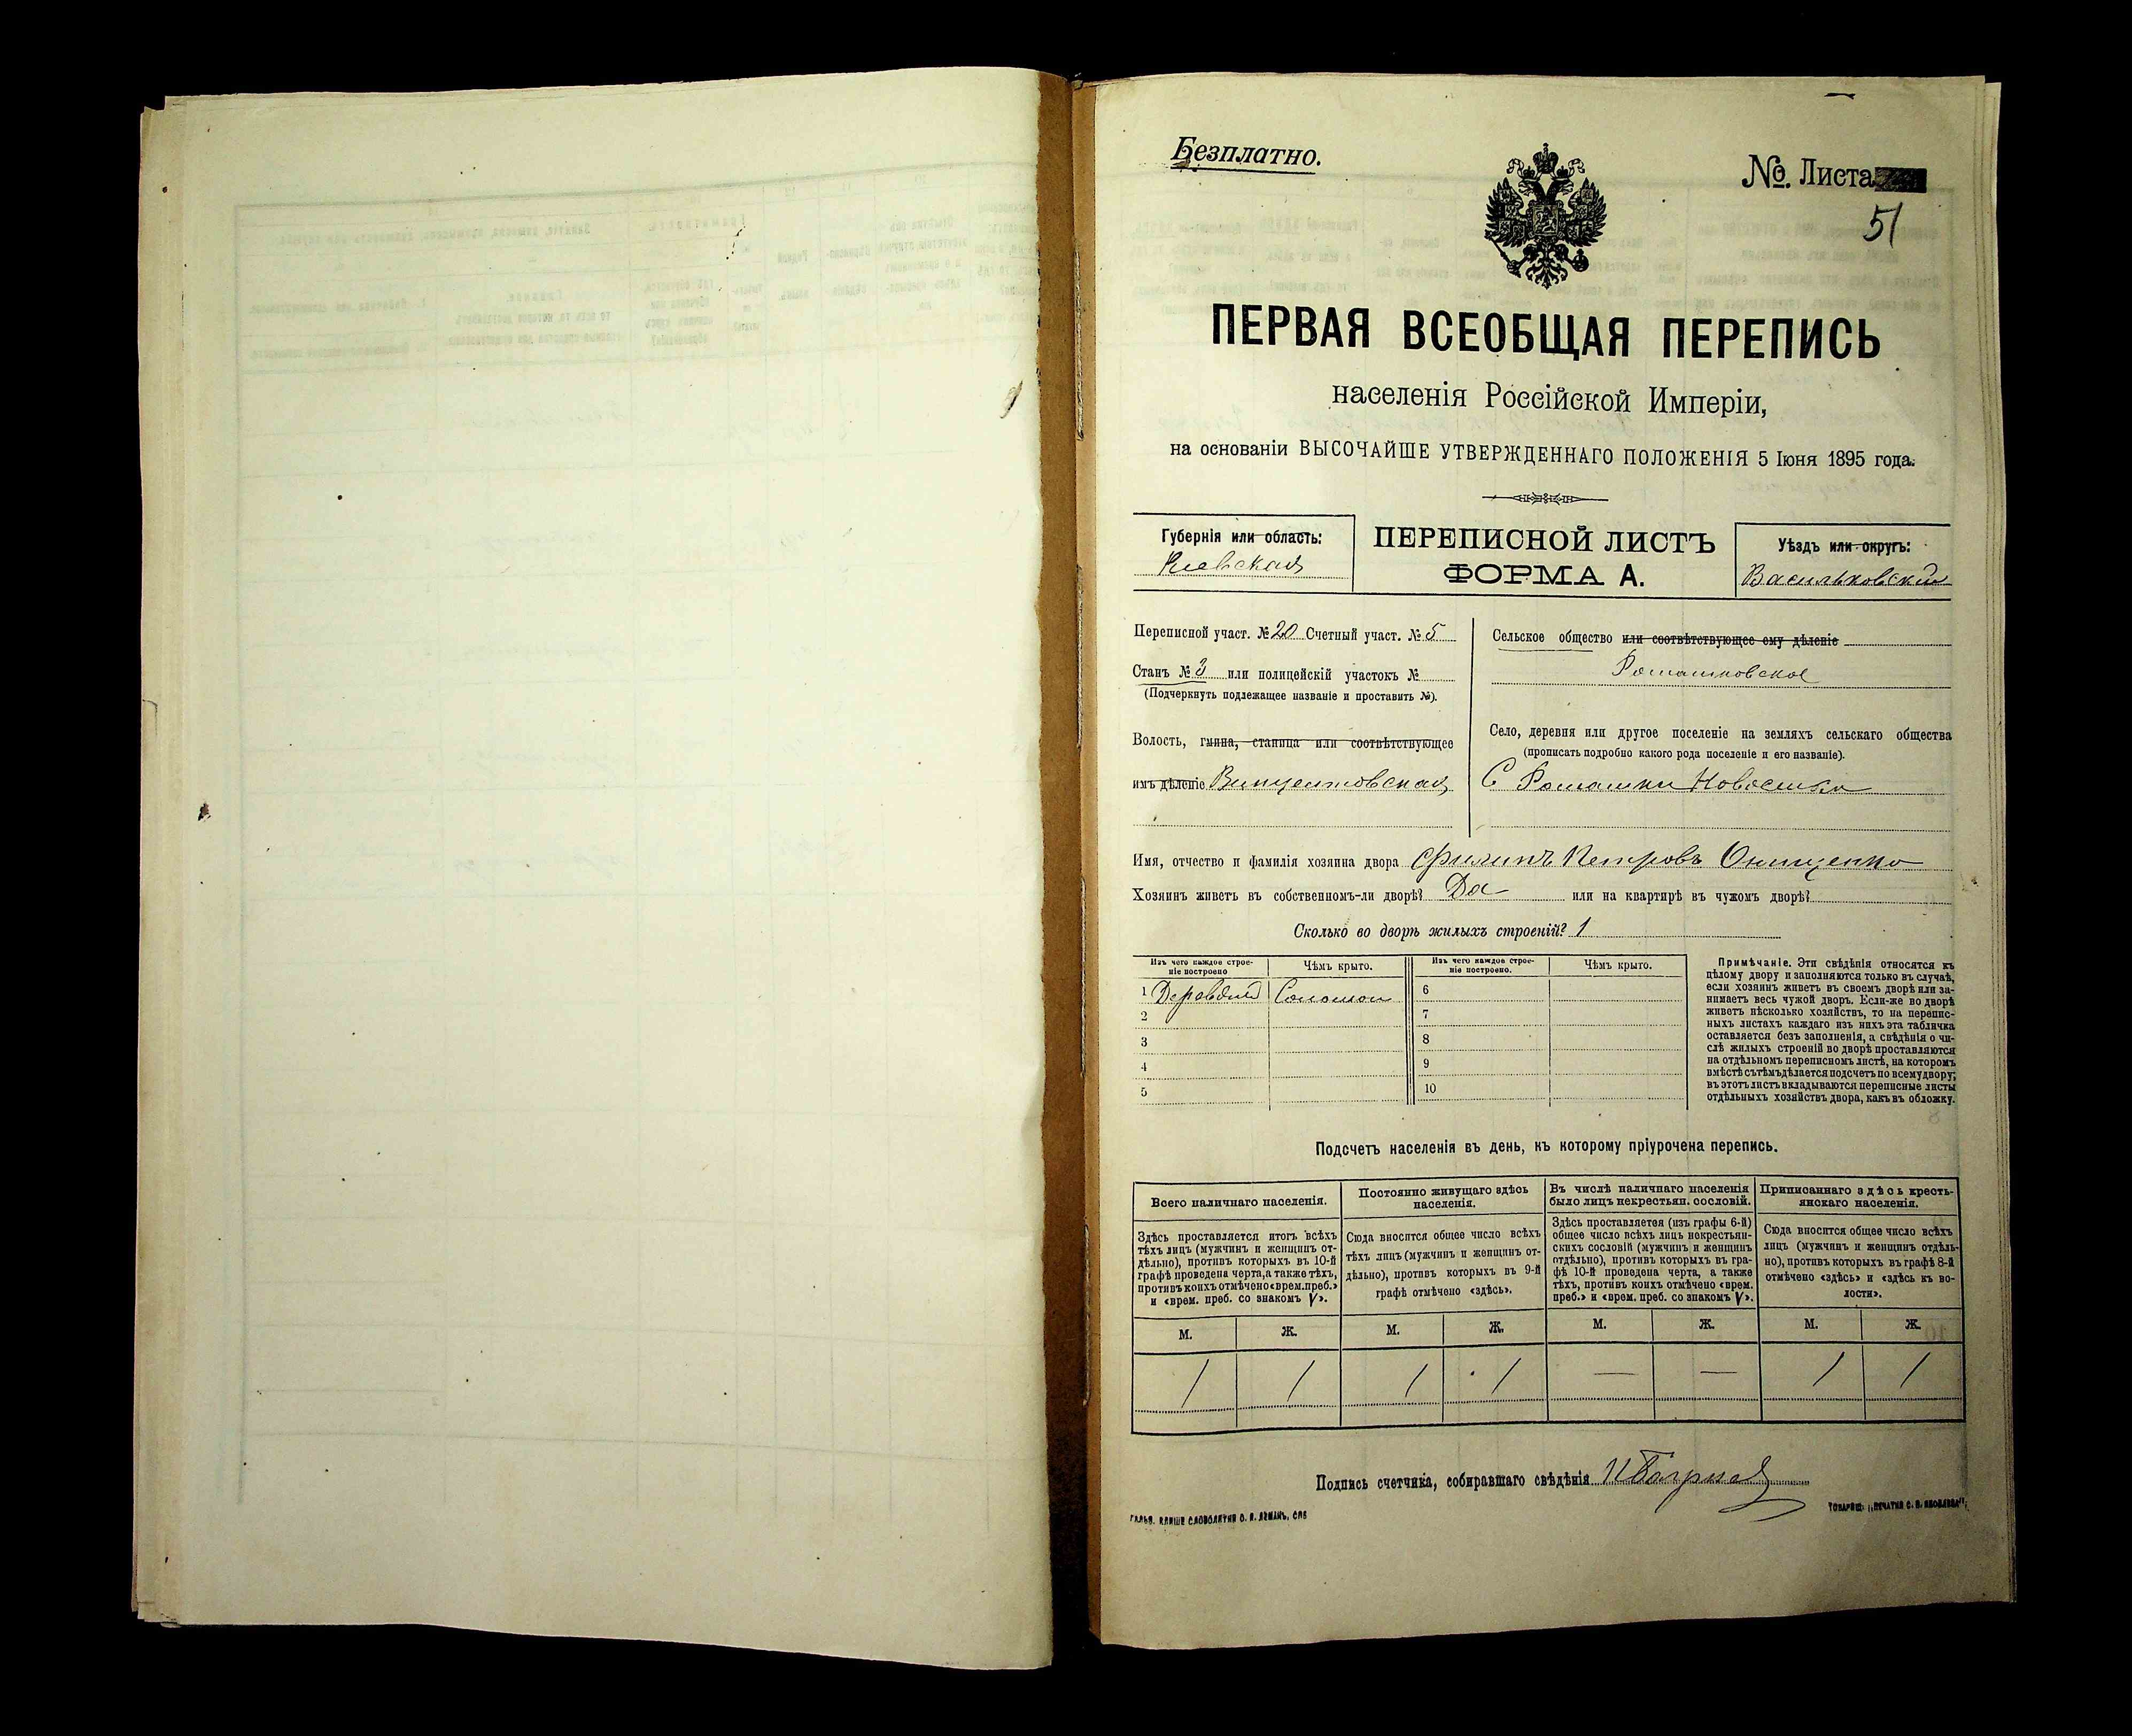 Безплатно.
№. Листа
51
ПЕРВАЯ ВСЕОБЩАЯ ПЕРЕПИСЬ
населенія Россійской Имперіи,
на основаніи ВЫСОЧАЙШЕ УТВЕРЖДЕННАГО ПОЛОЖЕНІЯ 5 Іюня 1895 года.
Губернія или область:
Кіевская
ПЕРЕПИСНОЙ ЛИСТЪ
ФОРМА А.
Уѣздъ или округъ:
Васильковскій
Переписной участ. № 20 Счетный участ. № 5
Станъ № 3 или полицейскій участокъ №
(Подчеркнуть подлежащее названіе и проставить №).
Волость, гмина, станица или соотвѣтствующее
имъ дѣленіе Винцентовская
Сельское общество или соотвѣтствующее ему дѣленіе
Ромашковское
Село, деревня или другое поселеніе на земляхъ сельскаго общества
(прописать подробно какого рода поселеніе и его названіе).
С Ромашки
Имя, отчество и фамилія хозяина двора Филипъ Петровъ Онищенко
Хозяинъ живетъ въ собственномъ-ли дворѣ? Да или на квартирѣ въ чужомъ дворѣ?
Сколько во дворѣ жилыхъ строеній? 1
Изъ чего каждое строе-
ніе построено
Чѣмъ крыто.
Изъ чего каждое строе-
ніе построено.
Чѣмъ крыто.
1 Соломою 6
2 7
3 8
4 9
5 10
Примѣчаніе. Эти свѣдѣнія относятся къ
цѣлому двору и заполняются только въ случаѣ,
если хозяинъ живетъ въ своемъ дворѣ или за-
нимаетъ весь чужой дворъ. Если-же во дворѣ
живетъ нѣсколько хозяйствъ, то на перепис-
ныхъ листахъ каждаго изъ нихъ эта табличка
оставляется безъ заполненія, а свѣдѣнія о чи-
слѣ жилыхъ строеній во дворѣ проставляются
на отдѣльномъ переписномъ листѣ, на которомъ
вмѣстѣ съ тѣмъ дѣлается подсчетъ по всему двору;
въ этотъ листъ вкладываются переписные листы
отдѣльныхъ хозяйствъ двора, какъ въ обложку.
Подсчетъ населенія въ день, къ которому пріурочена перепись.
Всего наличнаго населенія.
Здѣсь проставляется итогъ всѣхъ
тѣхъ лицъ (мужчинъ и женщинъ от-
дѣльно), противъ которыхъ въ 10-й
графѣ проведена черта, а также тѣхъ,
противъ коихъ отмѣчено «врем. преб.»
и «врем. преб. со знакомъ V».
Постоянно живущаго здѣсь
населенія.
Сюда вносится общее число всѣхъ
тѣхъ лицъ (мужчинъ и женщинъ от-
дѣльно), противъ которыхъ въ 9-й
графѣ отмѣчено «здѣсь».
Въ числѣ наличнаго населенія
было лицъ некрестьян. сословій.
Здѣсь проставляется (изъ графы 6-й)
общее число всѣхъ лицъ некрестьян-
скихъ сословій (мужчинъ и женщинъ
отдѣльно), противъ которыхъ въ гра-
фѣ 10-й проведена черта, а также
тѣхъ, противъ коихъ отмѣчено «врем.
преб.» и «врем. преб. со знакомъ V».
Приписаннаго здѣсь кресть-
янскаго населенія.
Сюда вносится общее число всѣхъ
лицъ (мужчинъ и женщинъ отдѣль-
но), противъ которыхъ въ графѣ 8-й
отмѣчено «здѣсь» и «здѣсь къ во-
лости».
М. Ж. М. Ж. М. Ж. М. Ж.
1 1 1 1 — — 1 1
Подпись счетчика, собиравшаго свѣдѣнія